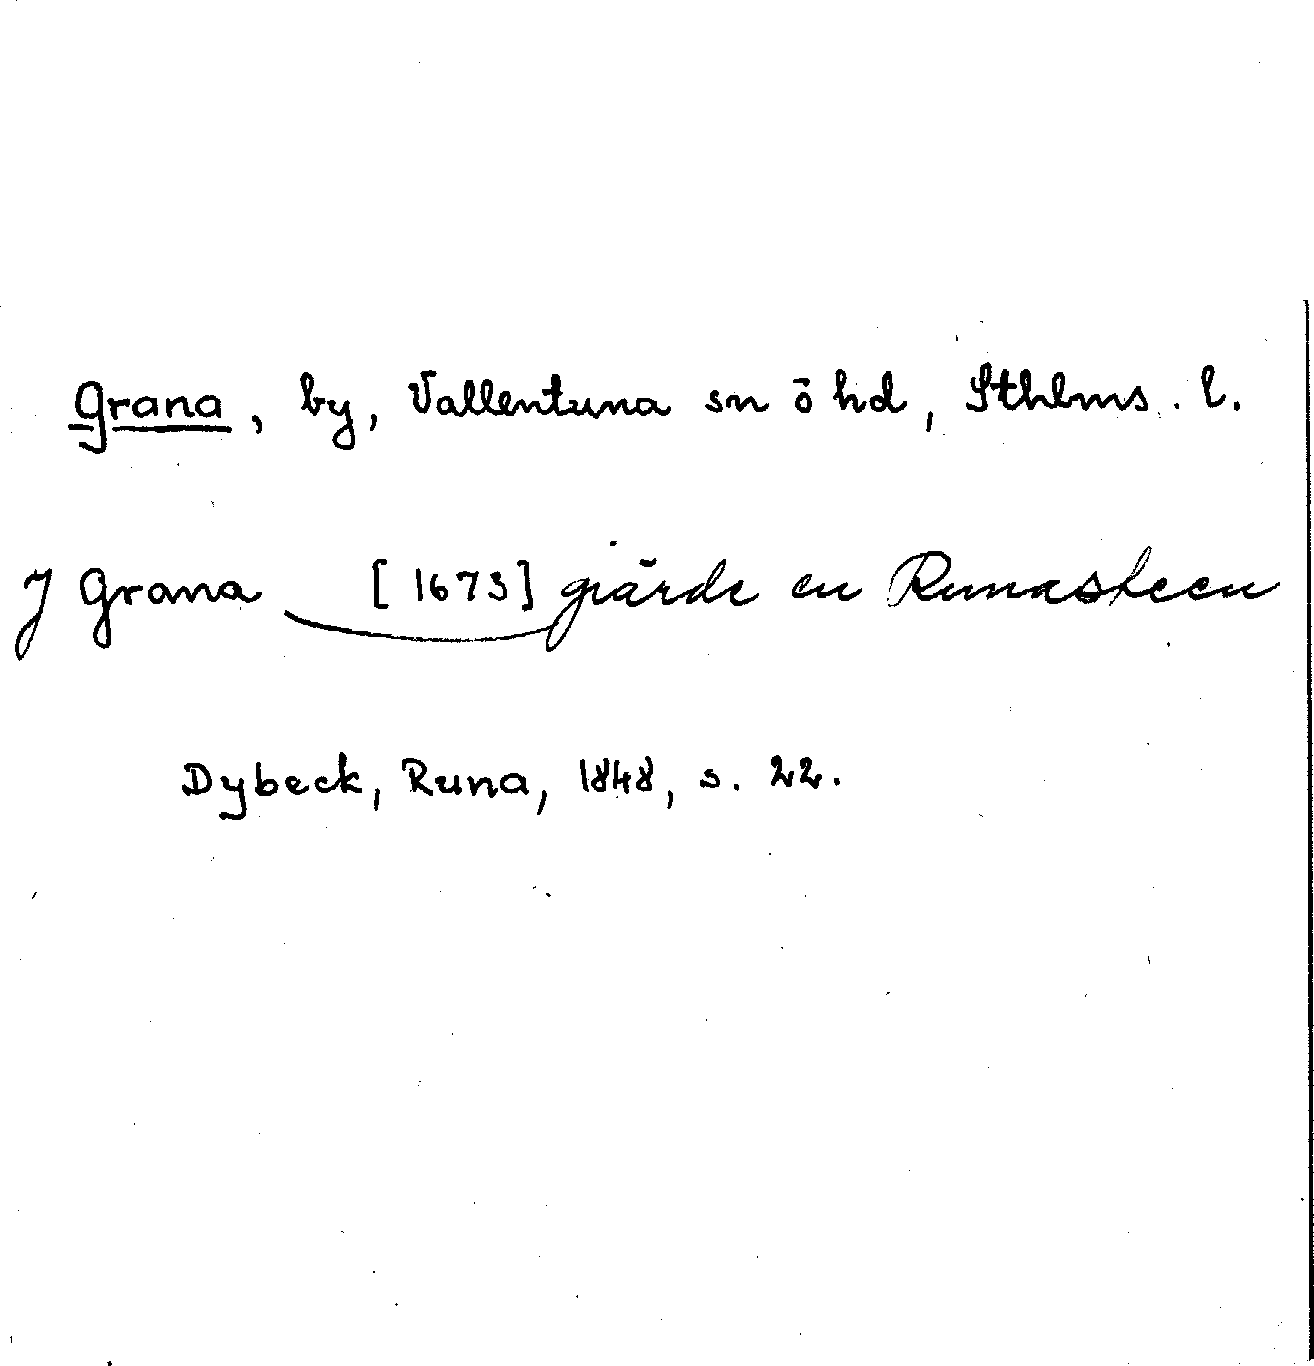 Grana, by, Vallentuna sn ö hd, Sthlms. l.
J Grana [1673] giärde en Runasteen
Dybeck, Runa, 1848, s. 22.